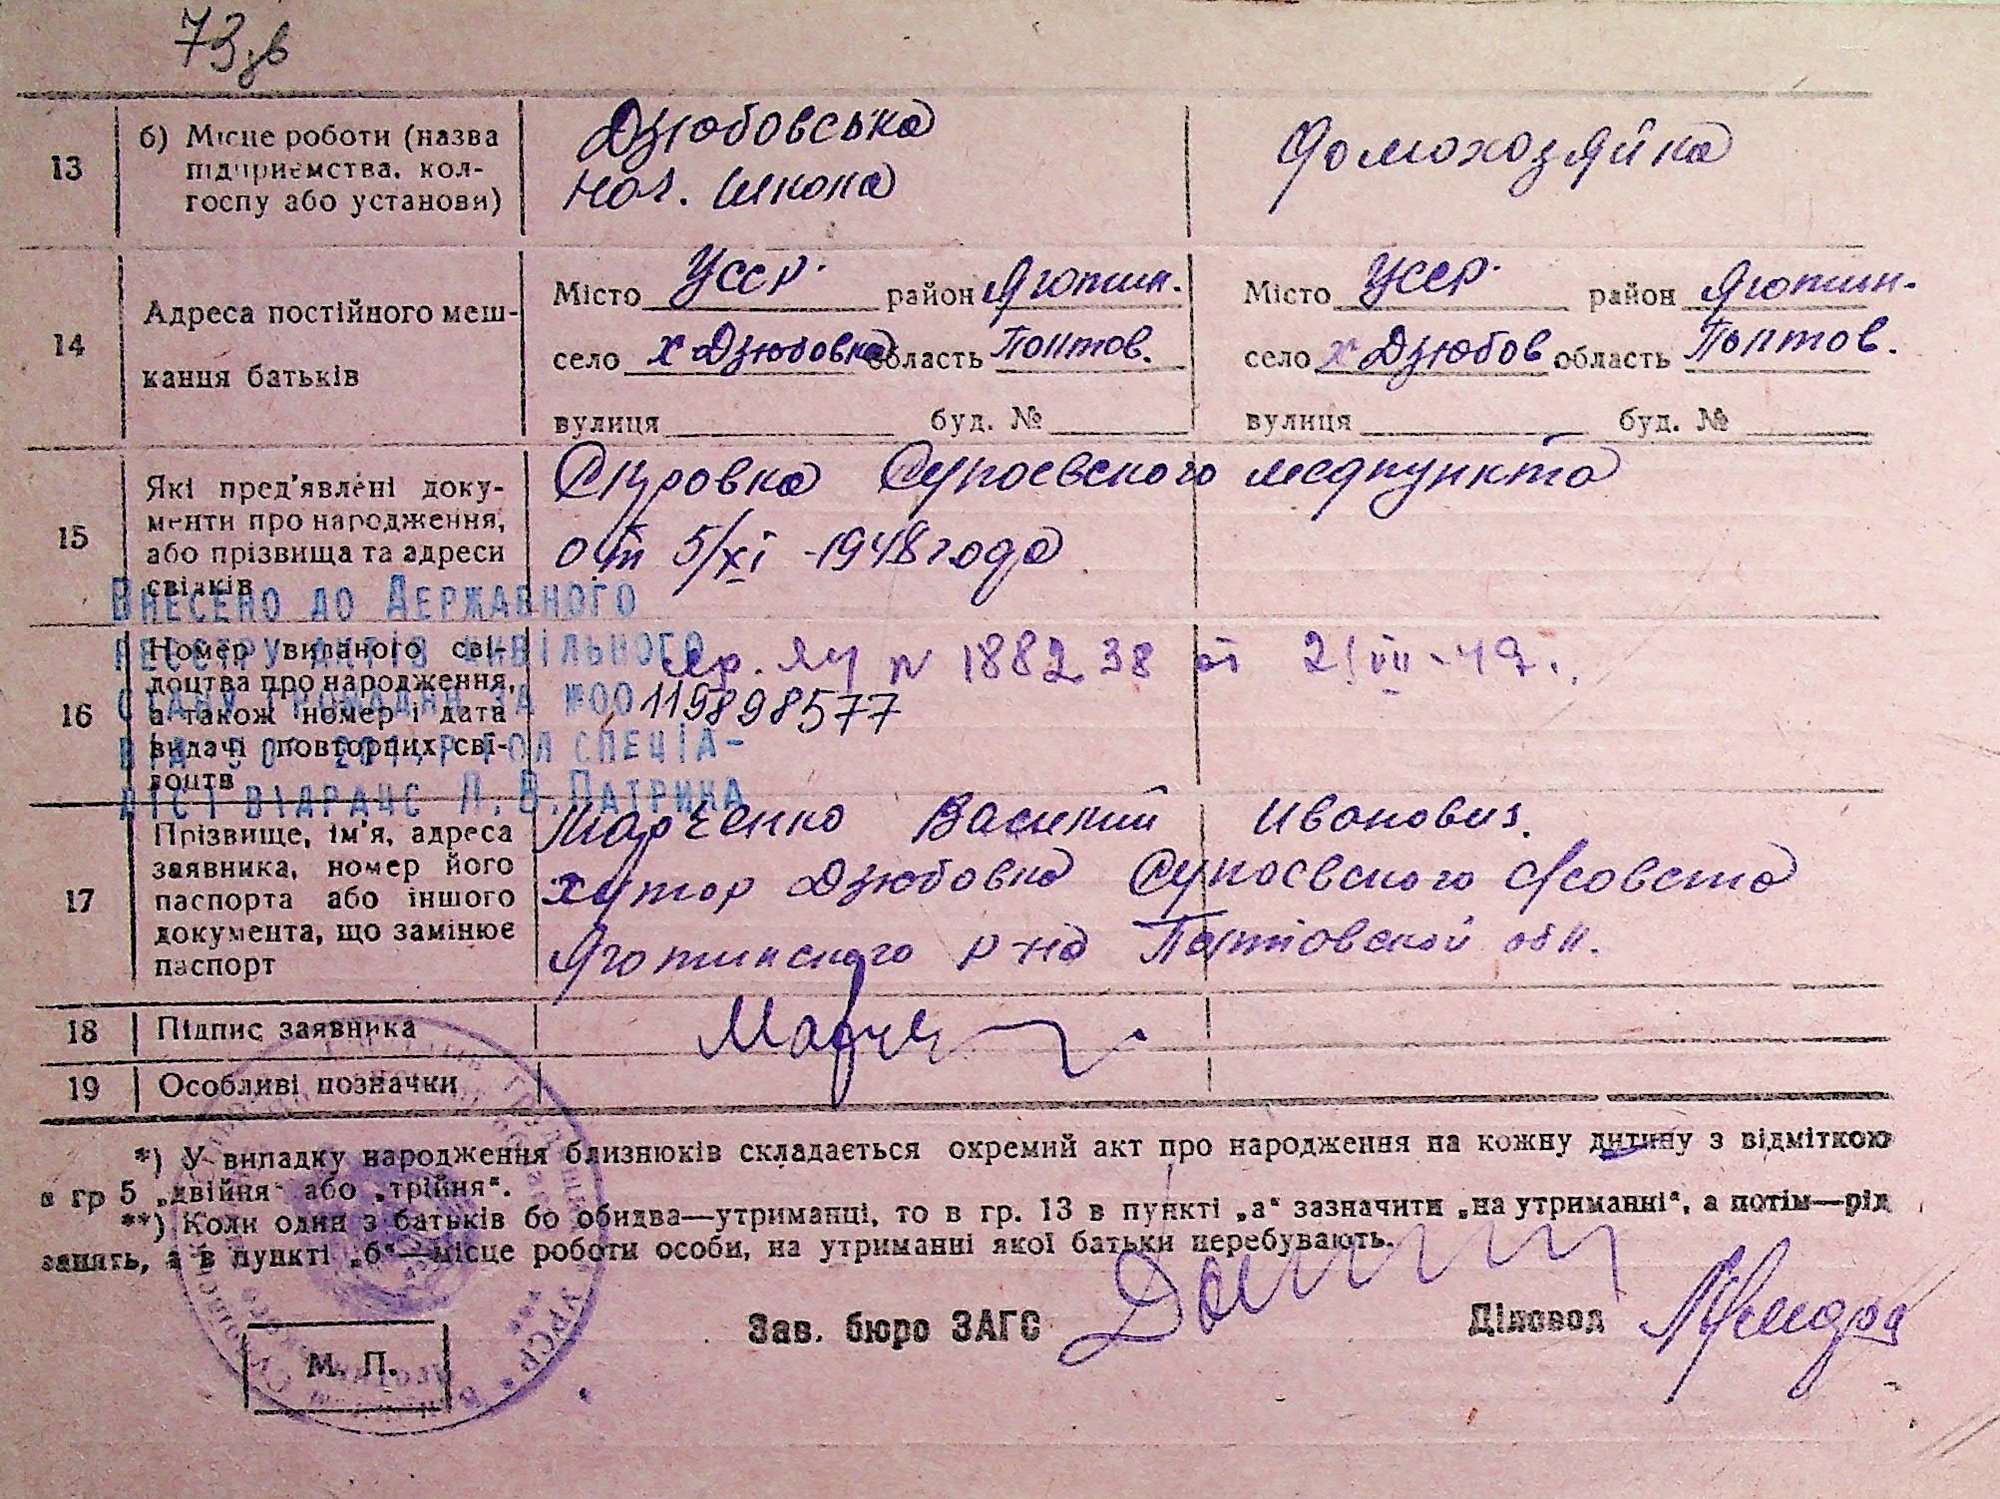 73 зв
13 б) Місце роботи (назва підприємства, колгоспу або установи)
Дзюбовська
поч. школа
домохозяйка
14 Адреса постійного мешкання батьків
Місто УССР. район Яготин.
село х Дзюбовка область Полтов.
вулиця буд. №
Місто УССР. район Яготин.
село х Дзюбов область Полтов.
вулиця буд. №
15 Які пред'явлені документи про народження, або прізвища та адреси свідків
Справка Супоевского медпункта
от 5/XI - 1948 года
Внесено до Державного
реєстру актів цивільного
стану громадян за №00 119898577
спеціа-
ліст відрацс Л.В.Патрина
16 Номер виданого свідоцтва про народження, а також номер і дата видачі повторних свідоцтв
N 188238 от 21 VII - 49 г.
17 Прізвище, ім'я, адреса заявника, номер його паспорта або іншого документа, що замінює паспорт
Марченко Василий Иванович.
хутор Дзюбовка Супоевского с/совета
Яготинского р-на Полтовской обл.
18 Підпис заявника
19 Особливі позначки
*) У випадку народження близнюків складається окремий акт про народження на кожну дитину з відміткою
в гр 5 „двійня“ або „трійня“.
**) Коли один з батьків бо обидва—утриманці, то в гр. 13 в пункті „а“ зазначити „на утриманні“, а потім—рід
занять, а в пункті „б“—місце роботи особи, на утриманні якої батьки перебувають.
Зав. бюро ЗАГС Діловод
М. П.